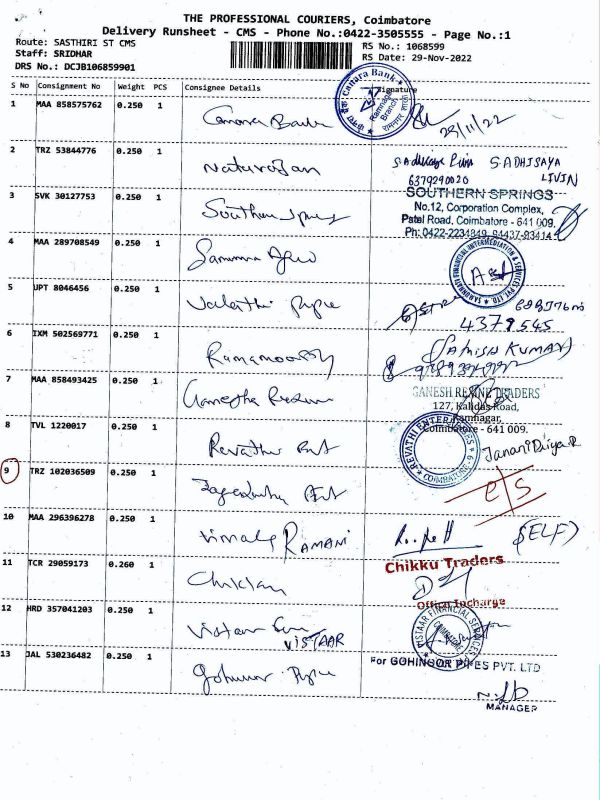 THE PROFESSIONAL COURIERS, Coimbatore
Delivery Runsheet - CMS - Phone No.:0422-3505555 - Page No.:1
Route: SASTHIRI ST CMS
Staff: SRIDHAR
DRS No.: DCJB106859901
RS No.: 1068599
RS Date: 29-Nov-2022
S No Consignment No Weight PCS Consignee Details Signature
1 MAA 858575762 0.250 1 Canara Bank
Canara Bank
Ramnagar Branch
28/11/22
2 TRZ 53844776 0.250 1 Natarajan
S.ADHISAYA
LIVIN
6379290020
3 SVK 30127753 0.250 1 Southern Springs
SOUTHERN SPRINGS
No.12, Corporation Complex,
Patel Road, Coimbatore - 641 009.
Ph: 0422-2234849, 94437-93414
4 MAA 289708549 0.250 1
5 UPT 8046456 0.250 1
4379545
6 IXM 502569771 0.250 1 Ramamoorthy
(SATHISH KUMAR)
7 MAA 858493425 0.250 1 Ganesha Rexine
GANESH REXINE TRADERS
127, Kalidas Road,
Ramnagar,
Coimbatore - 641 009.
8 TVL 1220017 0.250 1 Revathi Ent
REVATHI ENTERPRISES
COIMBATORE - 9
Janani Priya.R
9 TRZ 102036509 0.250 1
C/S
10 MAA 296396278 0.250 1 Vimala RAMANI
(SELF)
11 TCR 29059173 0.260 1
Chikku Traders
Office Incharge
12 HRD 357041203 0.250 1
VISTAAR
VISTAAR FINANCIAL SERVICES
COIMBATORE
13 JAL 530236482 0.250 1
For GOHINOOR PIPES PVT. LTD
MANAGER